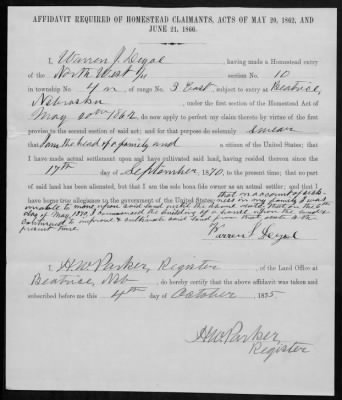 AFFIDAVIT REQUIRED OF HOMESTEAD CLAIMANTS, ACTS OF MAY 20, 1862, AND
JUNE 21, 1866.
I, Warren J. Deyoe, having made a Homestead entry
of the North West 1/4 section No. 10
in township No. 4 N of range No. 3 East, subject to entry at Beatrice,
Nebraska, under the first section of the Homestead Act of
May 20th 1862, do now apply to perfect my claim thereto by virtue of the first
proviso to the second section of said act; and for that purpose do solemnly swear
that I am the head of a family and a citizen of the United States; that I
have made actual settlement upon and have cultivated said land, having resided thereon since
the
17th day of September, 1870, to the present time; that no part
of said land has been alienated, but that I am the sole bona fide owner as an actual settler; and that I
have borne true allegiance to the government of the United States;
that on account of sick-
ness in my family I was
unable to move upon said land until the above date, that on the 6th
day of May, 1870 I commenced the building of a house upon the land &
continued to improve & cultivate said land from that date to the
present time
Warren J. Deyoe
I, H.W. Parker, Register, of the Land Office at
Beatrice, Neb, do hereby certify that the above affidavit was taken and
subscribed before me this 4th day of October, 1875
H.W. Parker,
Register